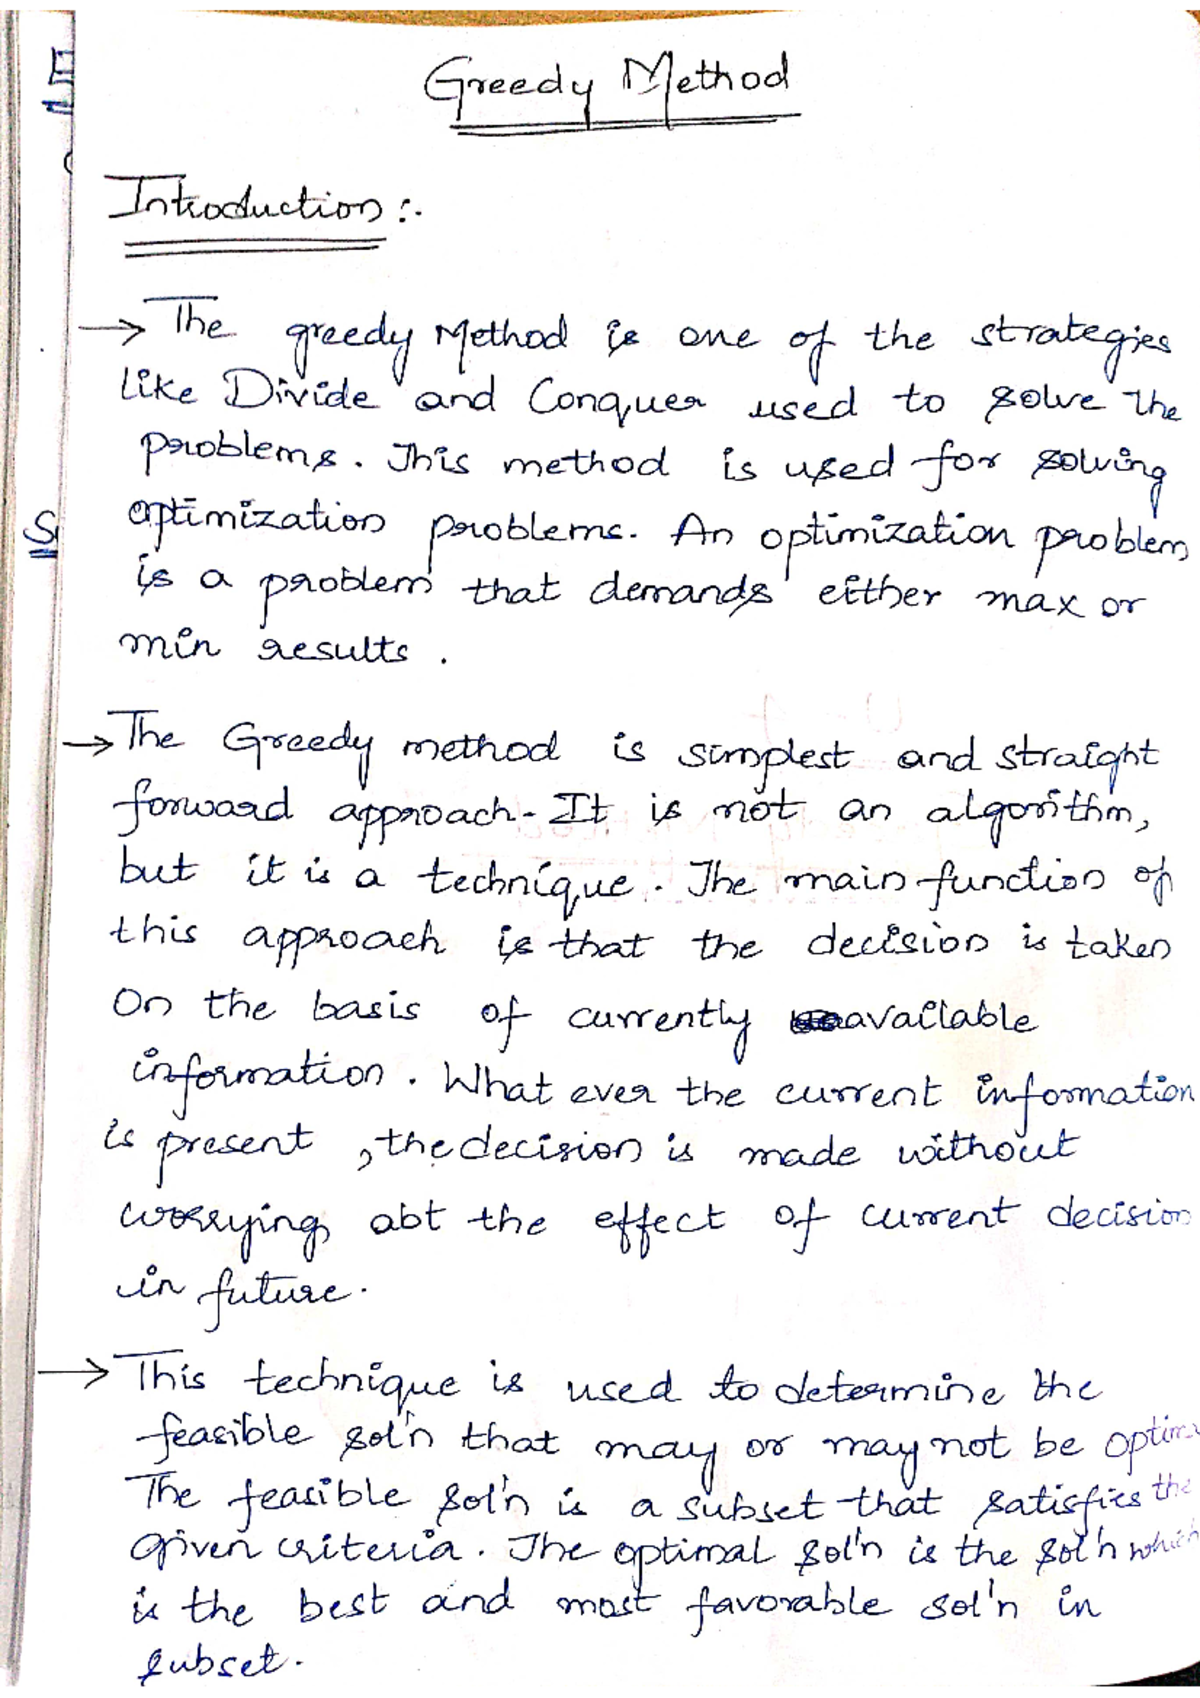 Greedy Method
Introduction :-
→ The greedy Method is one of the strategies
like Divide and Conquer used to solve the
problems. This method is used for solving
optimization problems. An optimization problem
is a problem that demands either max or
min results .
→ The Greedy method is simplest and straight
forward approach. It is not an algorithm,
but it is a technique. The main function of
this approach is that the decision is taken
On the basis of currently available
information. What ever the current information
is present , the decision is made without
worrying abt the effect of current decision
in future.
→ This technique is used to determine the
feasible sol'n that may or may not be
The feasible sol'n is a subset that satisfies the
given criteria. The optimal sol'n is the sol'n which
is the best and most favorable sol'n in
subset.